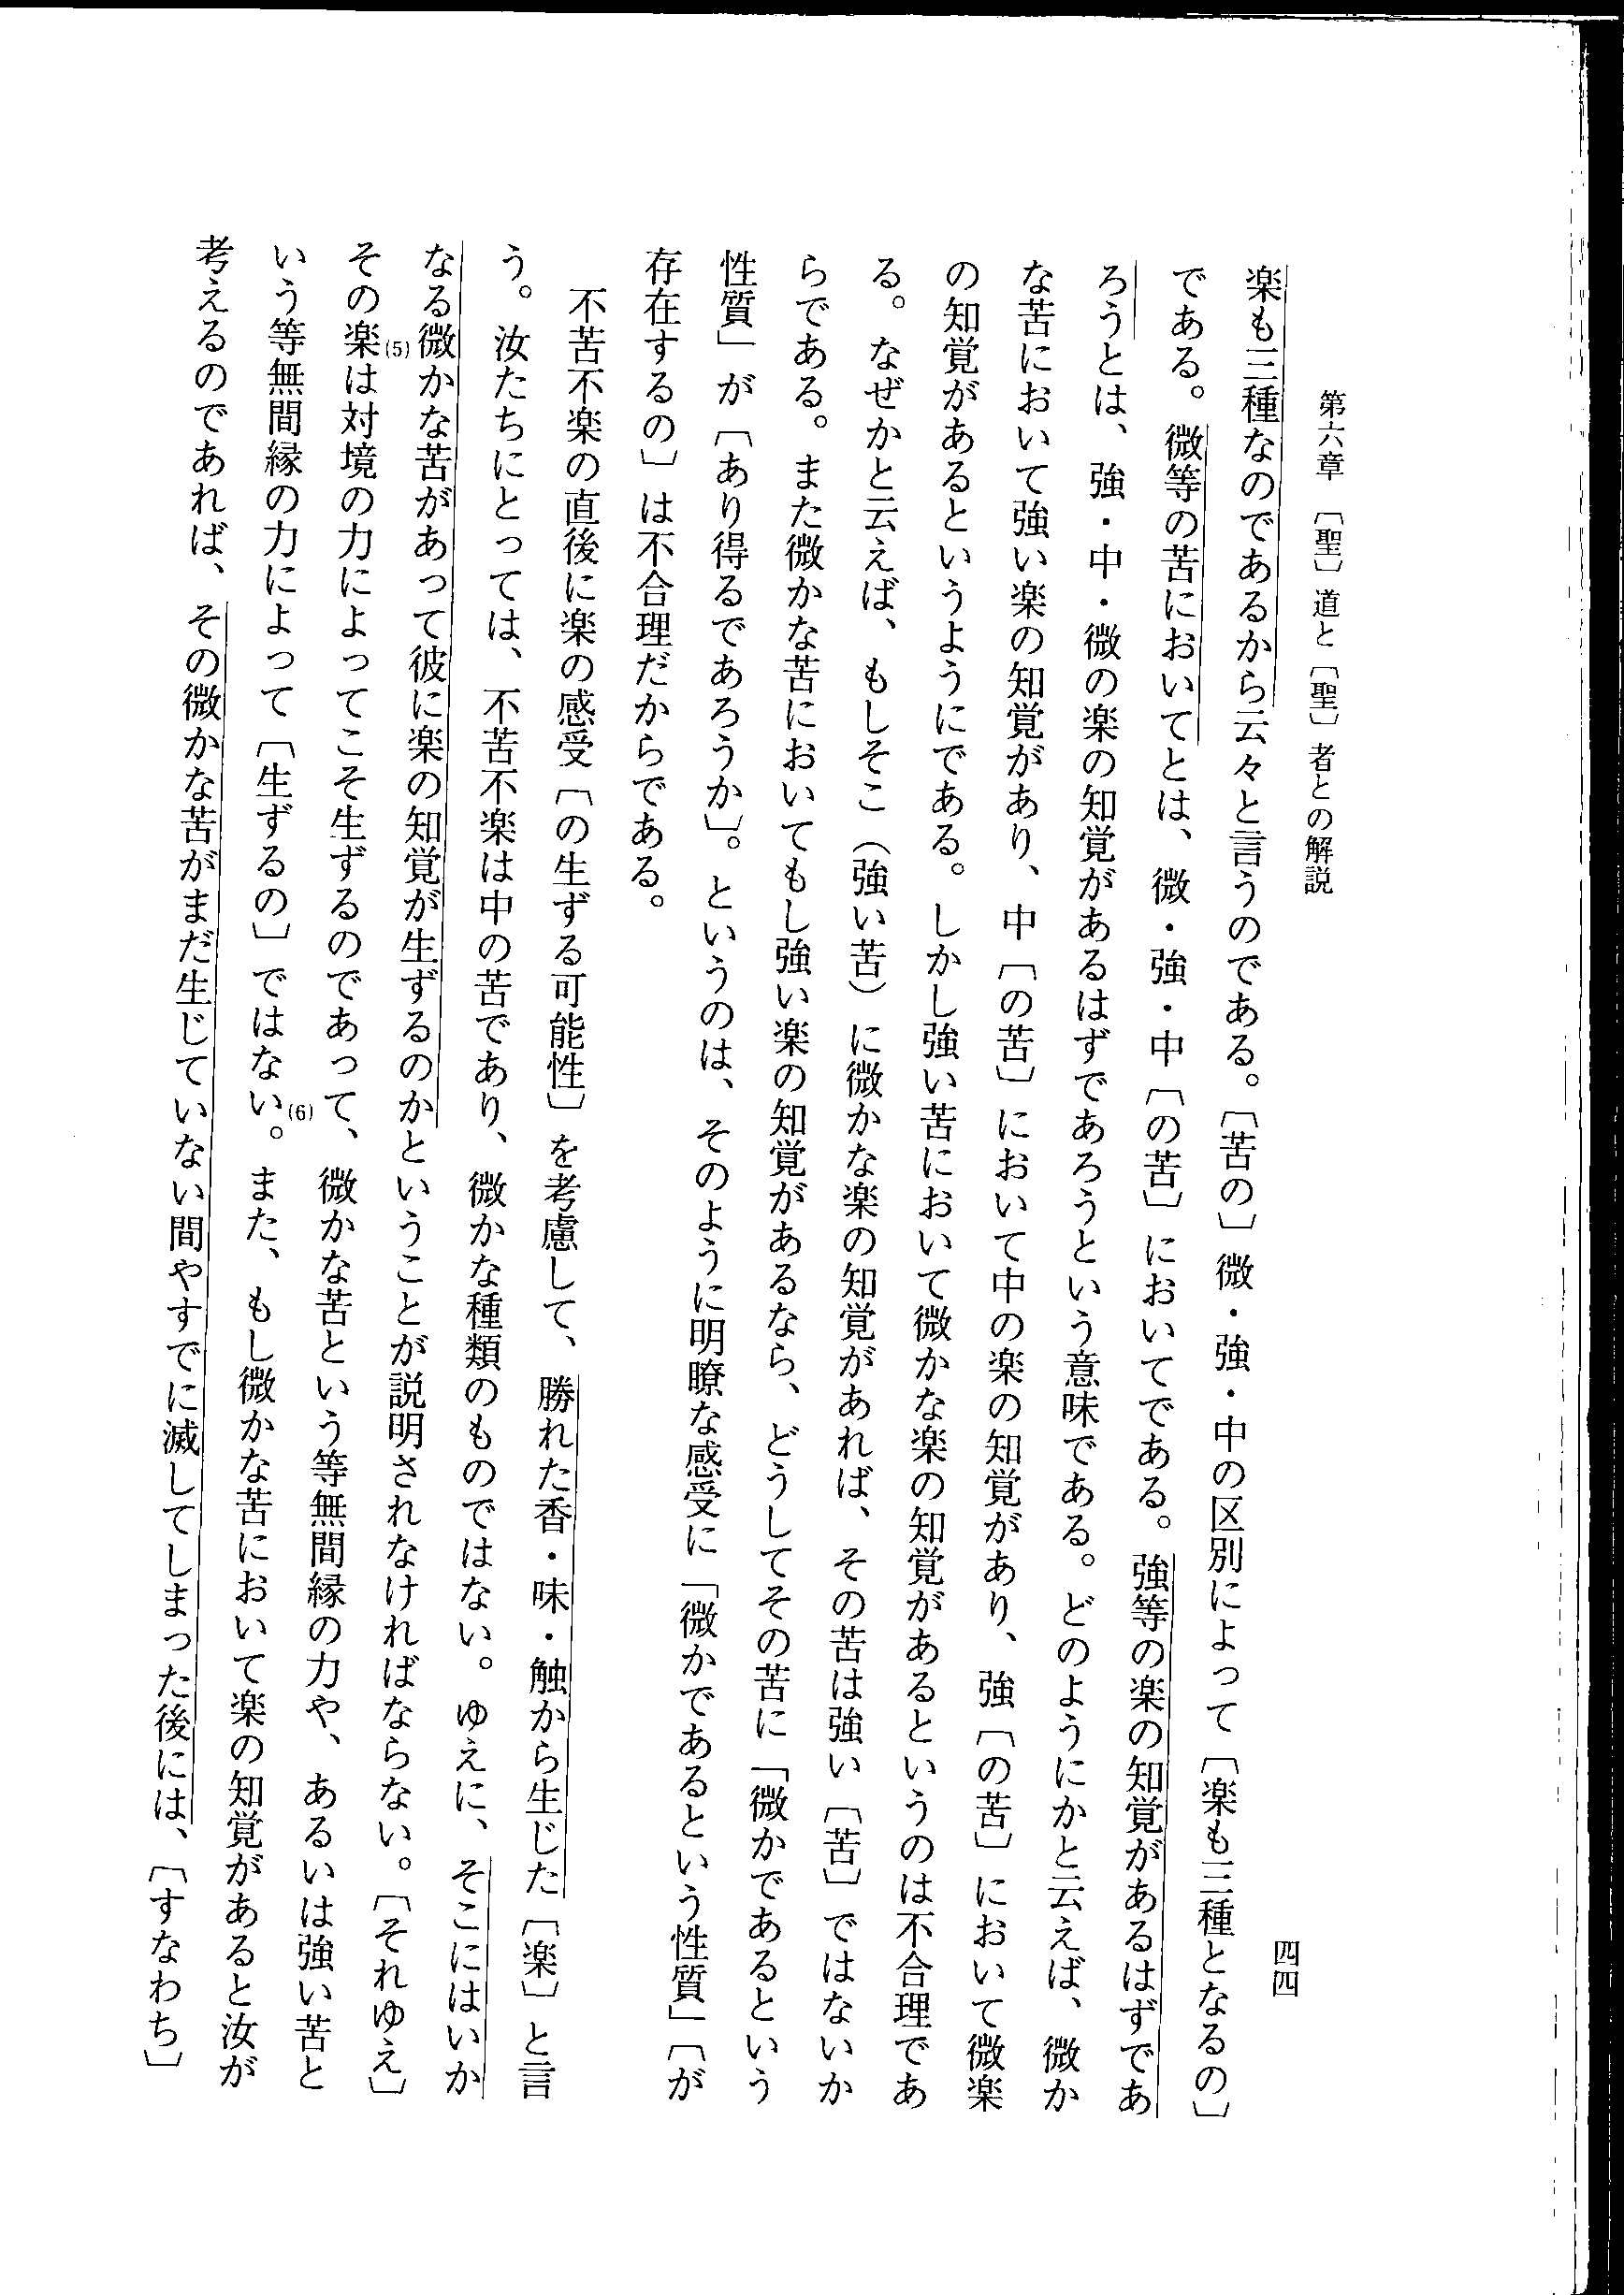 第六章　〔聖〕道と〔聖〕者との解説
四四
楽も三種なのであるから云々と言うのである。〔苦の〕微・強・中の区別によって〔楽も三種となるの〕
である。微等の苦においてとは、微・強・中〔の苦〕においてである。強等の楽の知覚があるはずであ
ろうとは、強・中・微の楽の知覚があるはずであろうという意味である。どのようにかと云えば、微か
な苦において強い楽の知覚があり、中〔の苦〕において中の楽の知覚があり、強〔の苦〕において微楽
の知覚があるというようにである。しかし強い苦において微かな楽の知覚があるというのは不合理であ
る。なぜかと云えば、もしそこ（強い苦）に微かな楽の知覚があれば、その苦は強い〔苦〕ではないか
らである。また微かな苦においてもし強い楽の知覚があるなら、どうしてその苦に「微かであるという
性質」が〔あり得るであろうか〕。というのは、そのように明瞭な感受に「微かであるという性質」〔が
存在するの〕は不合理だからである。
不苦不楽の直後に楽の感受〔の生ずる可能性〕を考慮して、勝れた香・味・触から生じた〔楽〕と言
う。汝たちにとっては、不苦不楽は中の苦であり、微かな種類のものではない。ゆえに、そこにはいか
なる微かな苦があって彼に楽の知覚が生ずるのかということが説明されなければならない。〔それゆえ〕
その楽(5)は対境の力によってこそ生ずるのであって、微かな苦という等無間縁の力や、あるいは強い苦と
いう等無間縁の力によって〔生ずるの〕ではない(6)。また、もし微かな苦において楽の知覚があると汝が
考えるのであれば、その微かな苦がまだ生じていない間やすでに滅してしまった後には、〔すなわち〕